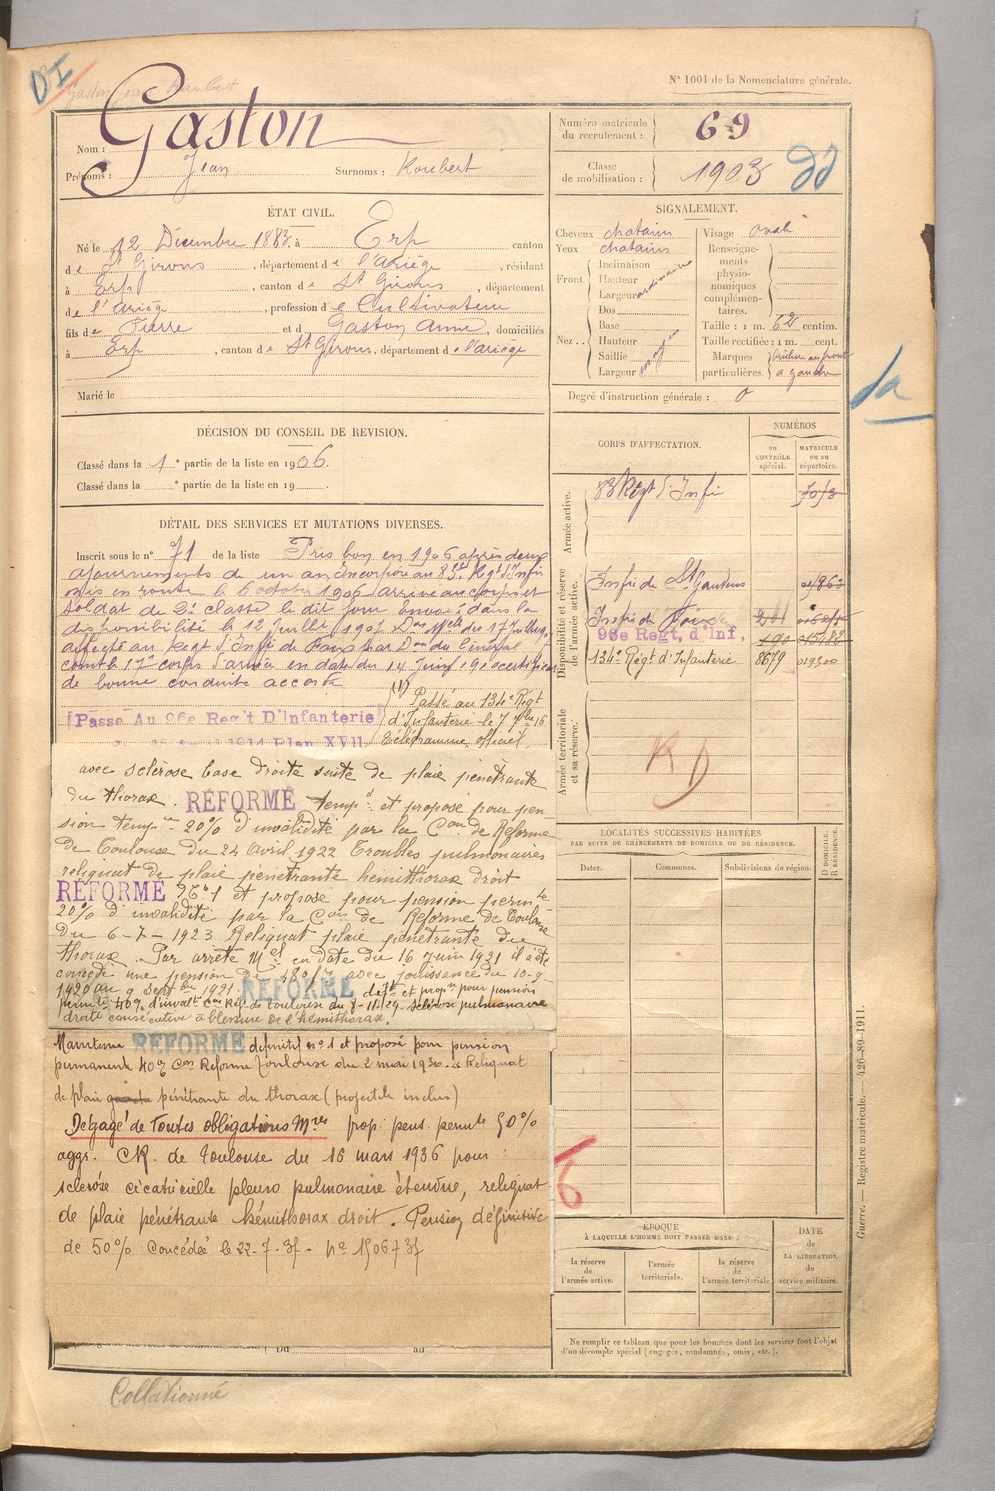 DI
Gaston Jean Roubert
N° 1001 de la Nomenclature générale.
Nom : Gaston
Prénoms : Jean Surnoms : Roubert
Numéro matricule du recrutement : 69
Classe de mobilisation : 1903
ÉTAT CIVIL.
Né le 12 Décembre 1883, à Erp canton
de St Girons, département de l'Ariège, résidant
à Erp, canton de St Girons, département
de l'Ariège, profession de Cultivateur
fils de Pierre et d Gaston Anne, domiciliés
à Erp, canton de St Girons, département de l'ariège
Marié le
SIGNALEMENT.
Cheveux chatains
Yeux chatains
Front. Inclinaison
Hauteur
Largeur ordinaire
Nez.. Dos
Base
Hauteur
Saillie
Largeur moyen
Visage oval
Renseignements physionomiques complémentaires.
Taille : 1 m. 62 centim.
Taille rectifiée : 1 m. cent.
Marques particulières. brûlure au front à gauche
Degré d'instruction générale : 0
DÉCISION DU CONSEIL DE REVISION.
Classé dans la 1e partie de la liste en 1906.
Classé dans la e partie de la liste en 19 .
DÉTAIL DES SERVICES ET MUTATIONS DIVERSES.
Inscrit sous le n° 71 de la liste Pris bon en 1906 après deux
ajournements de un an Incorporé au 83e Regt d'Infie
mis en route le 6 octobre 1906 arrivé au corps et
soldat de 2e classe le dit jour Envoyé dans la
disponibilité le 12 Juillet 1907 Don Mlle du 17 Juillet
affecté au Regt d'Infie de Foix par Don du Général
comt le 17e corps d'armée en date du 14 Juin certificat
de bonne conduite accordé
(1) Passé au 134e Régt
d'Infanterie le 7 7bre 16
Télégramme officiel.
Passé Au 96e Reg't D'Infanterie
1914 Plan XVII
avec sclérose base droite suite de plaie pénétrante
du thorax. RÉFORMÉ tempre et proposé pour pen
sion tempre 20% d'invalidité par la Con de Reforme
de Toulouse du 24 Avril 1922 Troubles pulmonaires
reliquat de plaie pénétrante hemithorax droit
RÉFORMÉ No 1 et proposé pour pension permte
20% d'invalidité par la Con de Reforme de Toulouse
du 6-7-1923 Reliquat plaie pénétrante du
thorax. Par arrêté Mel en date du 16 Juin 1921 il a été
concédé une pension de avec jouissance du 10-9
1920 au 9 Septbre 1921 RÉFORMÉ deft et propé pour pension
permte 40% d'invalté Con Réf. de toulouse du 7-11-29. sclérose pulmonaire
droite consécutive à blessure de l'hémithorax.
Maintenu RÉFORMÉ définitif n° 1 et proposé pour pension
permanente 40% Con Réforme Toulouse du 2 mai 1930. Reliquat
de plaie pénétrante du thorax (projectile inclus)
Dégagé de Toutes obligations Mres prop. pens. permte 50%
aggr. CR. de Toulouse du 16 mars 1936 pour :
sclérose cicatricielle pleuro pulmonaire étendue, reliquat
de plaie pénétrante hémithorax droit. Pension définitive
de 50% Concédée le 22-7-37
Du au
CORPS D'AFFECTATION.
NUMÉROS
au CONTRÔLE spécial.
MATRICULE ou au répertoire.
Armée active.
83 Régt d'Infie
Disponibilité et réserve de l'armée active.
Infie de St Gaudens
Infie de Foix
96e Regt, d'Inf,
134e Régt d'Infanterie 8679 019300
Armée territoriale et sa réserve.
RD
LOCALITÉS SUCCESSIVES HABITÉES
PAR SUITE DE CHANGEMENTS DE DOMICILE OU DE RÉSIDENCE.
Dates. Communes. Subdivisions de région.
D DOMICILE. R RÉSIDENCE.
6
ÉPOQUE
À LAQUELLE L'HOMME DOIT PASSER DANS :
la réserve de l'armée active.
l'armée territoriale.
la réserve de l'armée territoriale
DATE de LA LIBÉRATION du service militaire.
Ne remplir ce tableau que pour les hommes dont les services font l'objet
d'un décompte spécial (engagés, condamnés, omis, etc.).
Guerre. — Registre matricule. — 426-89-1911.
Collationné